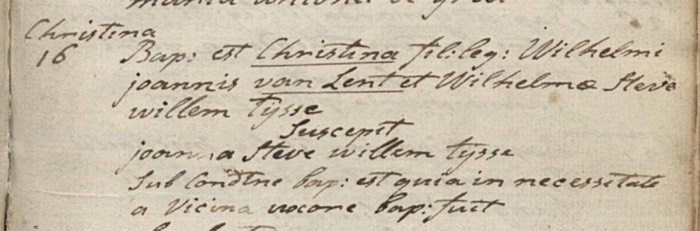 Christina
16 Bap: est Christina fil: leg: Wilhelmi
joannis van Lent et Wilhelmæ Steve
willem tijsse
Suscepit
joanna Steve willem tijsse
Sub Condtne bap: est quia in necessitate
a Vicina uxore bap: fuit